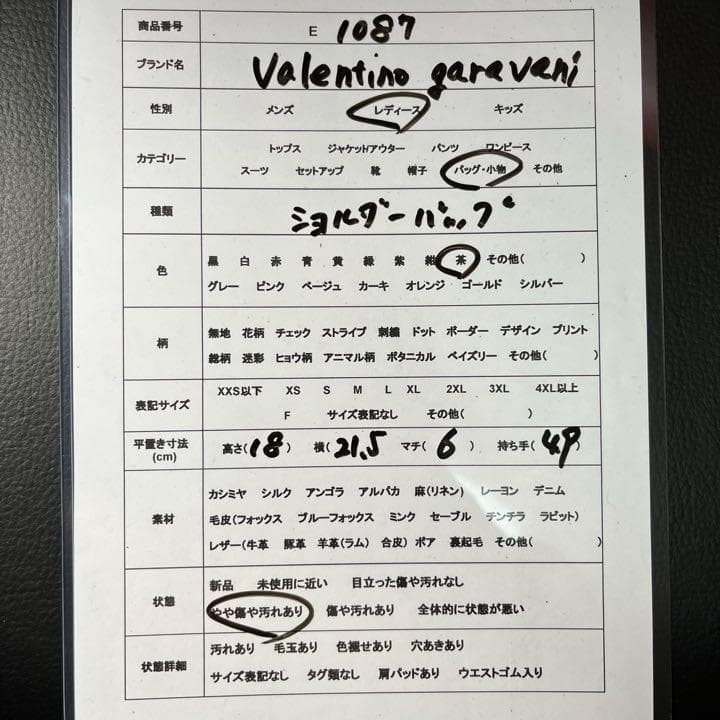 商品番号 E 1087
ブランド名 Valentino garavani
性別 メンズ レディース キッズ
カテゴリー トップス ジャケット/アウター パンツ ワンピース
スーツ セットアップ 靴 帽子 バッグ・小物 その他
種類 ショルダーバッグ
色 黒 白 赤 青 黄 緑 紫 紺 茶 その他( )
グレー ピンク ベージュ カーキ オレンジ ゴールド シルバー
柄 無地 花柄 チェック ストライプ 刺繍 ドット ボーダー デザイン プリント
総柄 迷彩 ヒョウ柄 アニマル柄 ボタニカル ペイズリー その他( )
表記サイズ XXS以下 XS S M L XL 2XL 3XL 4XL以上
F サイズ表記なし その他( )
平置き寸法 (cm) 高さ(18) 横(21.5) マチ(6) 持ち手(49)
素材 カシミヤ シルク アンゴラ アルパカ 麻(リネン) レーヨン デニム
毛皮(フォックス ブルーフォックス ミンク セーブル チンチラ ラビット)
レザー(牛革 豚革 羊革(ラム) 合皮) ボア 裏起毛 その他( )
状態 新品 未使用に近い 目立った傷や汚れなし
やや傷や汚れあり 傷や汚れあり 全体的に状態が悪い
状態詳細 汚れあり 毛玉あり 色褪せあり 穴あきあり
サイズ表記なし タグ類なし 肩パッドあり ウエストゴム入り